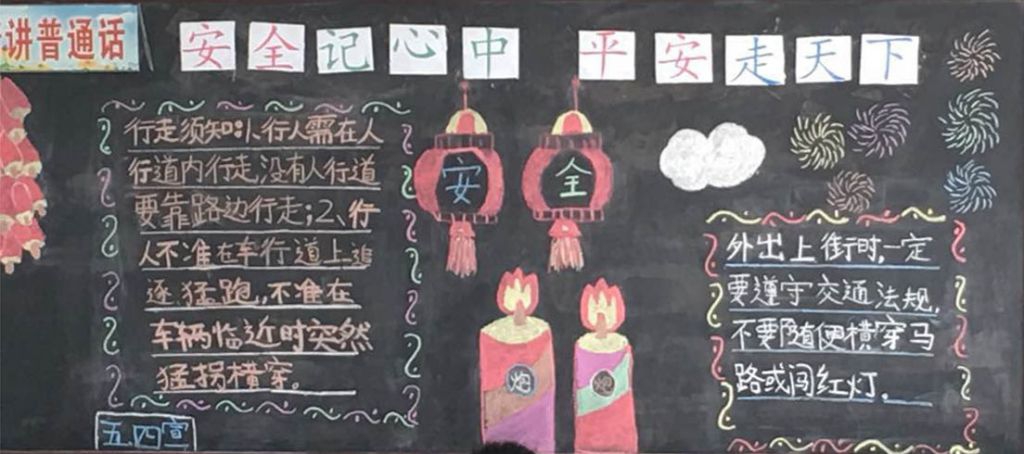 讲普通话
安全记心中 平安走天下
行走须知:1、行人需在人
行道内行走,没有人行道
要靠路边行走;2、行
人不准在车行道上追
逐猛跑,不准在
车辆临近时突然
猛拐横穿。
五.四宣
安 全
炮 炮
外出上街时,一定
要遵守交通法规,
不要随便横穿马
路或闯红灯。